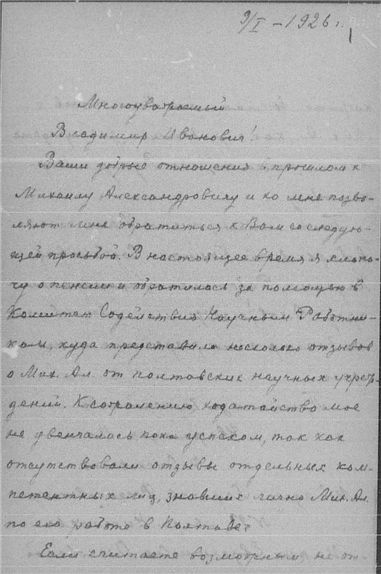 9/I – 1926 г.
Многоуважаемый
Владимир Иванович!
Ваши добрые отношения в прошлом к
Михаилу Александровичу и ко мне позво-
ляют мне обратиться к Вам со следую-
щей просьбой. В настоящее время я хлопо-
чу о пенсии и обратилась за помощью в
Комитет Содействия Научным Работни-
кам, куда представила несколько отзывов
о Мих. Ал. от полтавских научных учреж-
дений. К сожалению ходатайство мое
не увенчалось пока успехом, так как
отсутствовали отзывы отдельных ком-
петентных лиц, знавших лично Мих. Ал.
по его работе в Полтаве.
Если считаете возможным, не от-